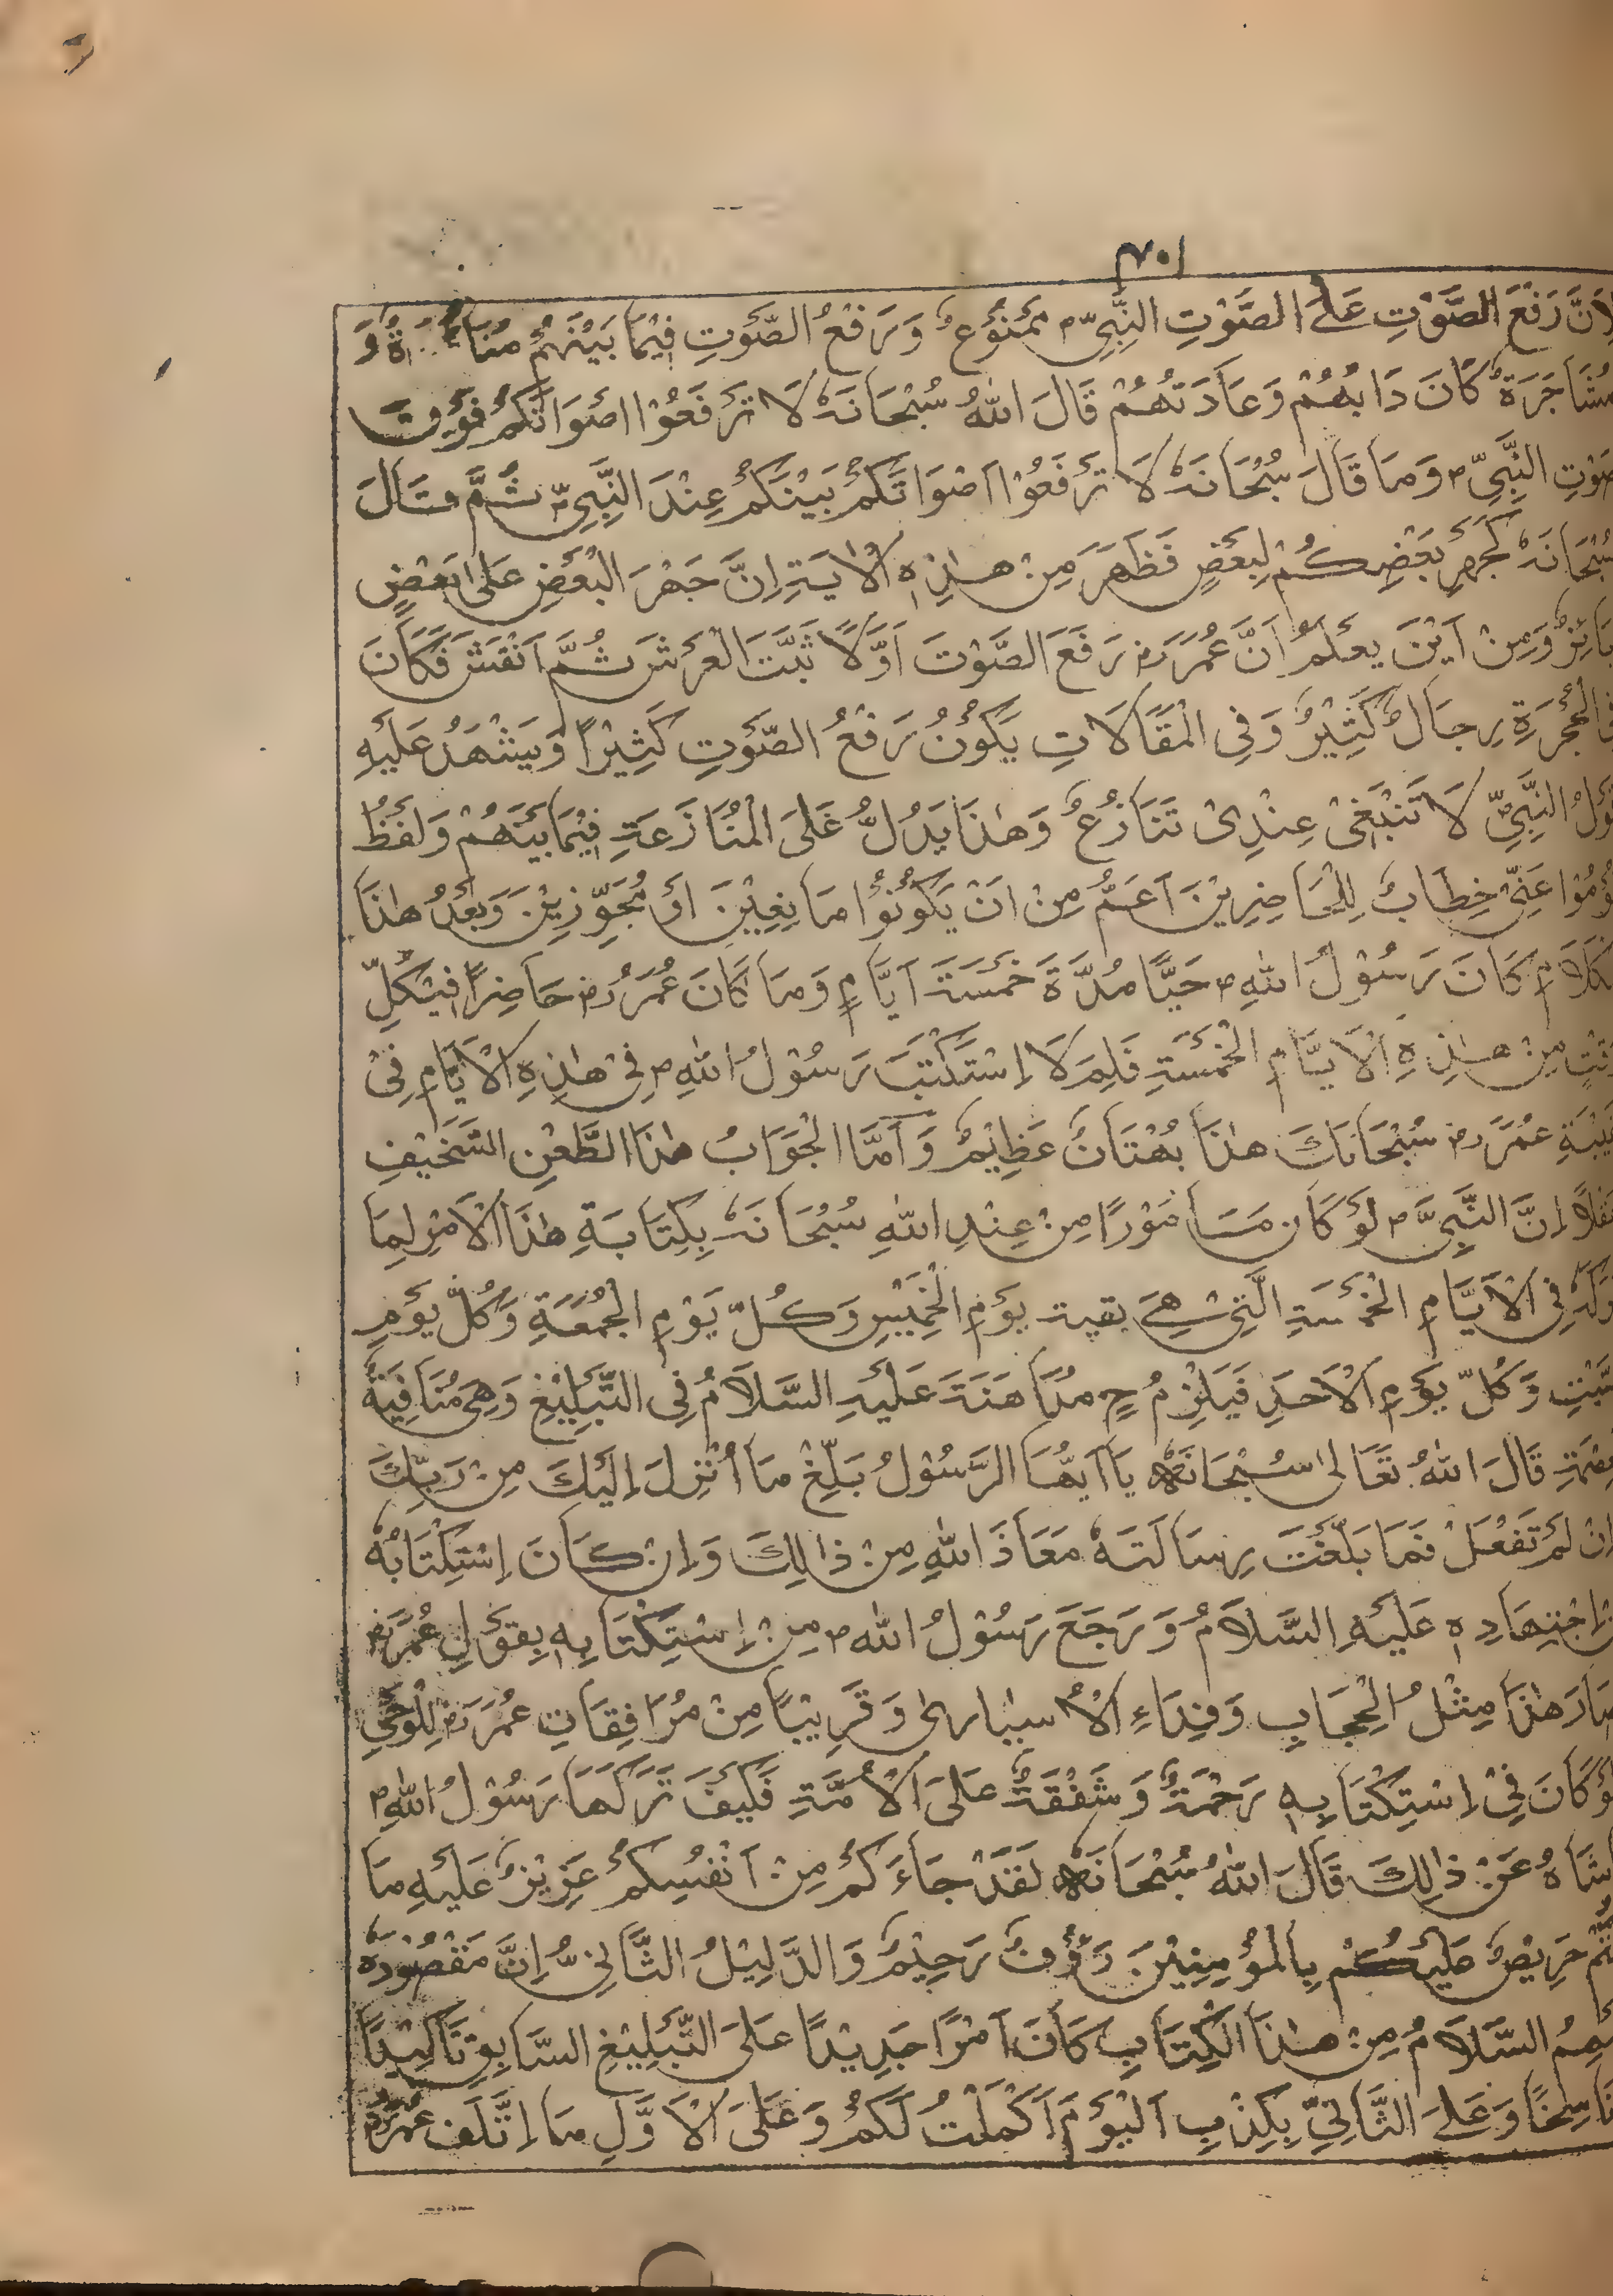 ٧٠١
لِاَنَّ رَفْعَ الصَّوْتِ عَلَى الصَّوْتِ النَّبِيِّ ۴ مَمْنُوْعٌ وَرَفْعُ الصَّوْتِ فِيْمَا بَيْنَهُمْ وَ
مُشَاجَرَةٌ كَانَ دَابُهُمْ وَعَادَتُهُمْ قَالَ اللهُ سُبْحَانَهٗ لَا تَرْفَعُوْا اصْوَاتَكُمْ فَوْقَ
صَوْتِ النَّبِيِّ ۴ وَمَا قَالَ سُبْحَانَهٗ لَا تَرْفَعُوْا اَصْوَاتَكُمْ بَيْنَكُمْ عِنْدَ النَّبِيِّ ۴ ثُمَّ قَالَ
سُبْحَانَهٗ كَجَهْرِ بَعْضِكُمْ لِبَعْضٍ فَظَهَرَ مِنْ هٰذِهِ الْاٰيَةِ اِنَّ جَهْرَ الْبَعْضِ عَلٰى بَعْضٍ
جَائِزٌ وَمِنْ اَيْنَ يعْلَمُ اَنَّ عُمَرَ رض رَفَعَ الصَّوْتَ اَوَّلًا ثَبَّتَ الْعَرْشَ ثُمَّ اَنْقَشَ فَكَانَ
فِى الْحُجْرَةِ رِجَالٌ كَثِيْرٌ وَفِى الْمَقَالَاتِ يَكُوْنُ رَفْعُ الصَّوْتِ كَثِيْرًا وَيَشْهَدُ عَلَيْهِ
قَوْلُ النَّبِيِّ لَا تَنْبَغِىْ عِنْدِىْ تَنَازُعٌ وَهٰذَا يَدُلُّ عَلَى الْمُنَازَعَةِ فِيْمَا بَيْنَهُمْ وَلَفْظُ
قُوْمُوْا عَنِّىْ خِطَابٌ لِلْحَاضِرِيْنَ اَعَمُّ مِنْ اَنْ يَكُوْنُوْا مَانِعِيْنَ اَوْ مُجَوِّزِيْنَ وَبَعْدُ هٰذَا
الكَلَامِ كَانَ رَسُوْلُ اللهِ ۴ حَيًّا مُدَّةَ خَمْسَةَ اَيَّامٍ وَمَا كَانَ عُمَرُ رض حَاضِرًا فِيْ كُلِّ
وَقْتٍ مِنْ هٰذِهِ الْاَيَّامِ الْخَمْسَةِ فَلِمَ لَا اِسْتَكْتَبَ رَسُوْلُ اللهِ ۴ فِىْ هٰذِهِ الْاَيَّامِ فِىْ
غَيْبَةِ عُمَرَ رض سُبْحَانَكَ هٰذَا بُهْتَانٌ عَظِيْمٌ وَ اَمَّا الْجَوَابُ هٰذَا الطَّعْنِ السَّخِيْفِ
عَقْلًا اِنَّ النَّبِيَّ ۴ لَوْ كَانَ مَامُوْرًا مِنْ عِنْدِ اللهِ سُبْحَانَهٗ بِكِتَابَةِ هٰذَا الْاَمْرِ لِمَا
تَرَكَهٗ فِى الْاَيَّامِ الْخَمْسَةِ الَّتِىْ هِىَ بقيۃ يَوْمِ الْخَمِيْسِ وَكُلِّ يَوْمِ الْجُمُعَةِ وَكُلِّ يَوْمِ
السَّبْتِ وَكُلِّ يَوْمِ الْاَحَدِ فَيَلْزِمُ ح مُدَاهَنَةَ عَلَيْهِ السَّلَامُ فِى التَّبْلِيْغِ وَهِىَ مُنَافِيَةُ
لِعِصْمَةِ قَالَ اللهُ تَعَالٰى سُبْحَانَهٗ يَا اَيُّهَا الرَّسُوْلُ بَلِّغْ مَا اُنْزِلَ اِلَيْكَ مِنْ رَبِّكَ
وَاِنْ لَمْ تَفْعَلْ فَمَا بَلَّغْتَ رِسَالَتَهٗ مَعَاذَ اللهِ مِنْ ذَالِكَ وَاِنْ كَانَ اِسْتِكْتَابُهٗ
مِنْ اِجْتِهَادِهِ عَلَيْهِ السَّلَامُ وَرَجَعَ رَسُوْلُ اللهِ ۴ مِنْ اِسْتِكْتَابِهٖ بِقَوْلِ عُمَرَ رض
صَارَ هٰذَا مِثْلُ الْحِجَابِ وَفِدَاءِ الْاُسَارىٰ وَقَرِيْبًا مِنْ مُرَافِقَاتِ عُمَرَ رض لِلْوَحْىِ
لَوْ كَانَ فِىْ اِسْتِكْتَابِهٖ رَحْمَةٌ وَشَفْقَةٌ عَلَى الْاُمَّةِ فَكَيْفَ تَرَكَهَا رَسُوْلُ اللهِ ۴
حَاشَاهُ عَنْ ذَالِكَ قَالَ اللهُ سُبْحَانَهٗ لَقَدْ جَاءَكُمْ مِنْ اَنْفُسِكُمْ عَزِيْزٌ عَلَيْهِ مَا
عَنِتُّمْ حَرِيْصٌ عَلَيْكُمْ بِالْمُؤْمِنِيْنَ رَؤُوْفٌ رَحِيْمٌ وَالدَّلِيْلُ الثَّانِىْ اِنَّ مَقْصُوْدَهٗ
عَلَيْهِمُ السَّلَامُ مِنْ هٰذَا الْكِتَابِ كَانَ اَمْرًا جَدِيْدًا عَلَى التَّبْلِيْغِ السَّابِقِ تَاكِيْدًا
نَاسِخًا وَعَلَى الثَّانِىْ بِكِذْبِ اَلْيَوْمَ اَكْمَلْتُ لَكُمْ وَعَلَى الْاَوَّلِ مَا اِتَّلَفَ عُمَرُ رض